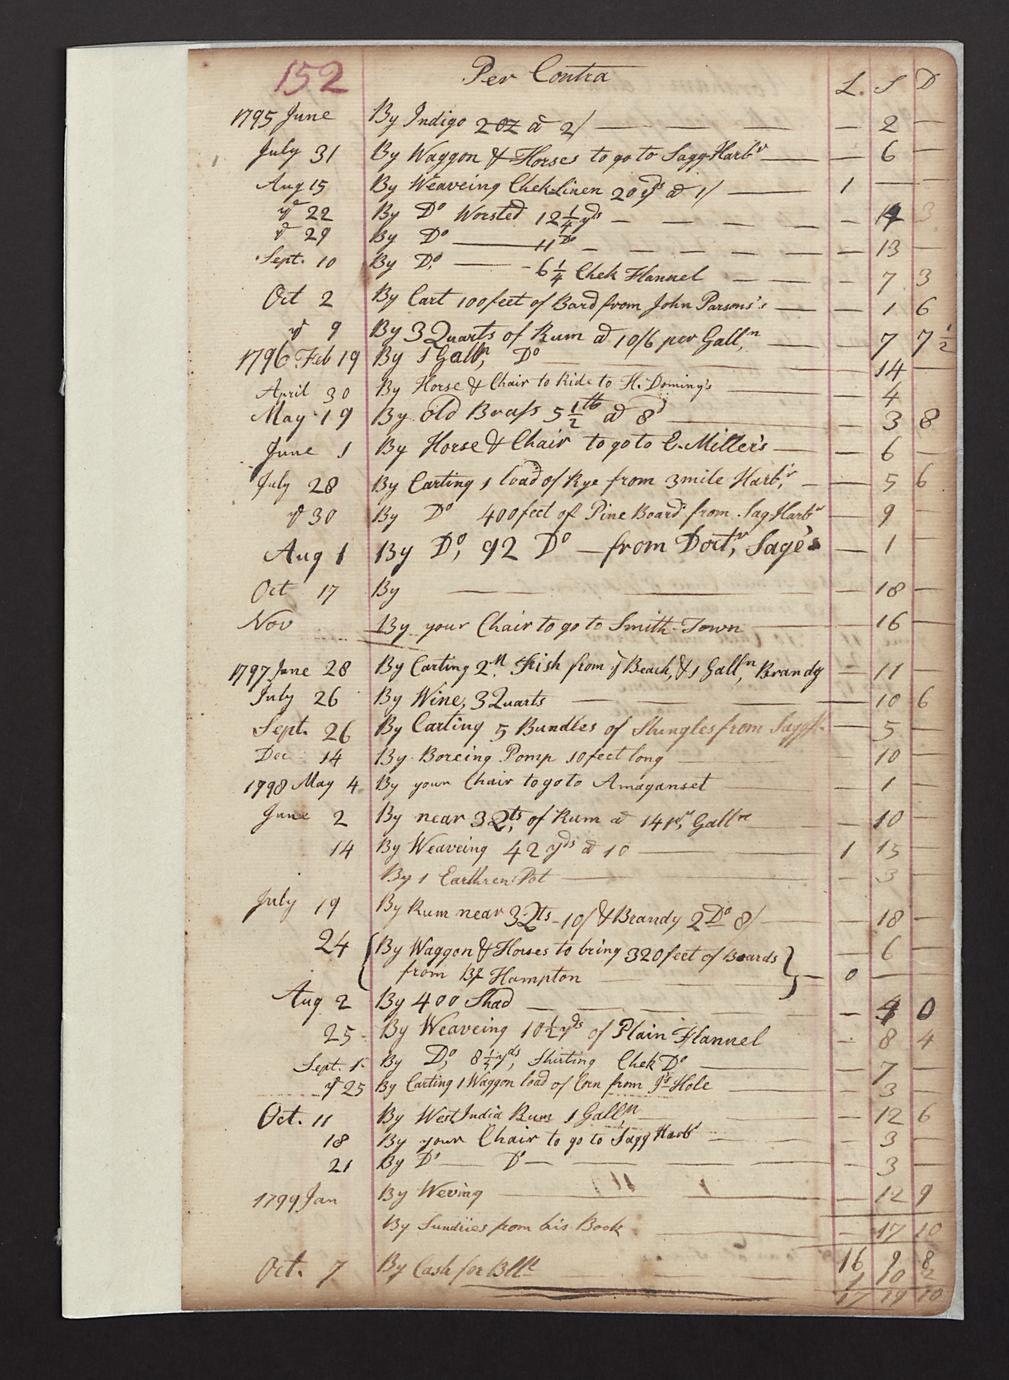 152 Per Contra L. S D
1795 June By Indigo 2 oz a 2/ — — 2 —
July 31 By Waggon & Horses to go to Sagg Harbr — — 6 —
Aug 15 By Weaveing Chek Linen 20 yds a 1/ — 1 — —
yd 22 By Do Worsted 12 1/4 yds — — 3
yd 29 By Do — 11 Do — — 13 —
Sept. 10 By Do, — 6 1/4 Chek Flannel — — 7 3
Oct 2 By Cart 100 feet of Bard from John Parsons's — — 1 6
yd 9 By 3 Quarts of Rum a 10/6 per Galln, — — 7 7 1/2
1796 Feb 19 By 1 Galln, Do — — 14 —
April 30 By Horse & Chair to Ride to H. Doming's — — 4 —
May 19 By old Brass 5 1/2 lb a 8d — — 3 8
June 1 By Horse & Chair to go to E. Miller's — — 6 —
July 28 By Carting 1 load of Rye from 3 mile Harbr, — — 5 6
yd 30 By Do 400 feet of Pine Board from Sag Harbr — 9 —
Aug 1 By Do, 92 Do — from Doctr, Sage's — 1 —
Oct 17 By — — — 18 —
Nov By your Chair to go to Smith-Town — 16 —
1797 June 28 By Carting 2M. Fish from ye Beach, & 1 Galln, Brandy — 11 —
July 26 By Wine, 3 Quarts — — 10 6
Sept. 26 By Carting 5 Bundles of Shingles from Saggh. — 5 —
Dec 14 By Boreing Pomp 10 feet long — — 10 —
1798 May 4 By your Chair to go to Amaganset — — 1 —
June 2 By near 3 Qts, of Rum a 14 pr, Galln — — 10 —
14 By Weaveing 42 yds a 10 — 1 15 —
By 1 Earthren Pot — — 3 —
July 19 By Rum near 3 Qts - 10/ & Brandy 2 Do 8/ — 18 —
24 { By Waggon & Horses to bring 320 feet of Boards } — 6 —
from Be Hampton — 0 — —
Aug 2 By 400 Shad — — 4 0
25 By Weaveing 10 1/2 yds of Plain Flannel — 8 4
Sept. 1 By Do, 8 1/2 yds, Shirting Chek Do — — 7 —
yd 25 By Carting 1 Waggon load of Corn from Hole — 3 —
Oct. 11 By West India Rum 1 Galln — — 12 6
18 By your Chair to go to Sagg Harbr — — 3 —
21 By Do — Do — — — 3 —
1799 Jan By Weving — — 12 9
By Sundries from his Book — 17 10
16 9 8
Oct. 7 By Cash for Bllc 1 10 2
17 19 10